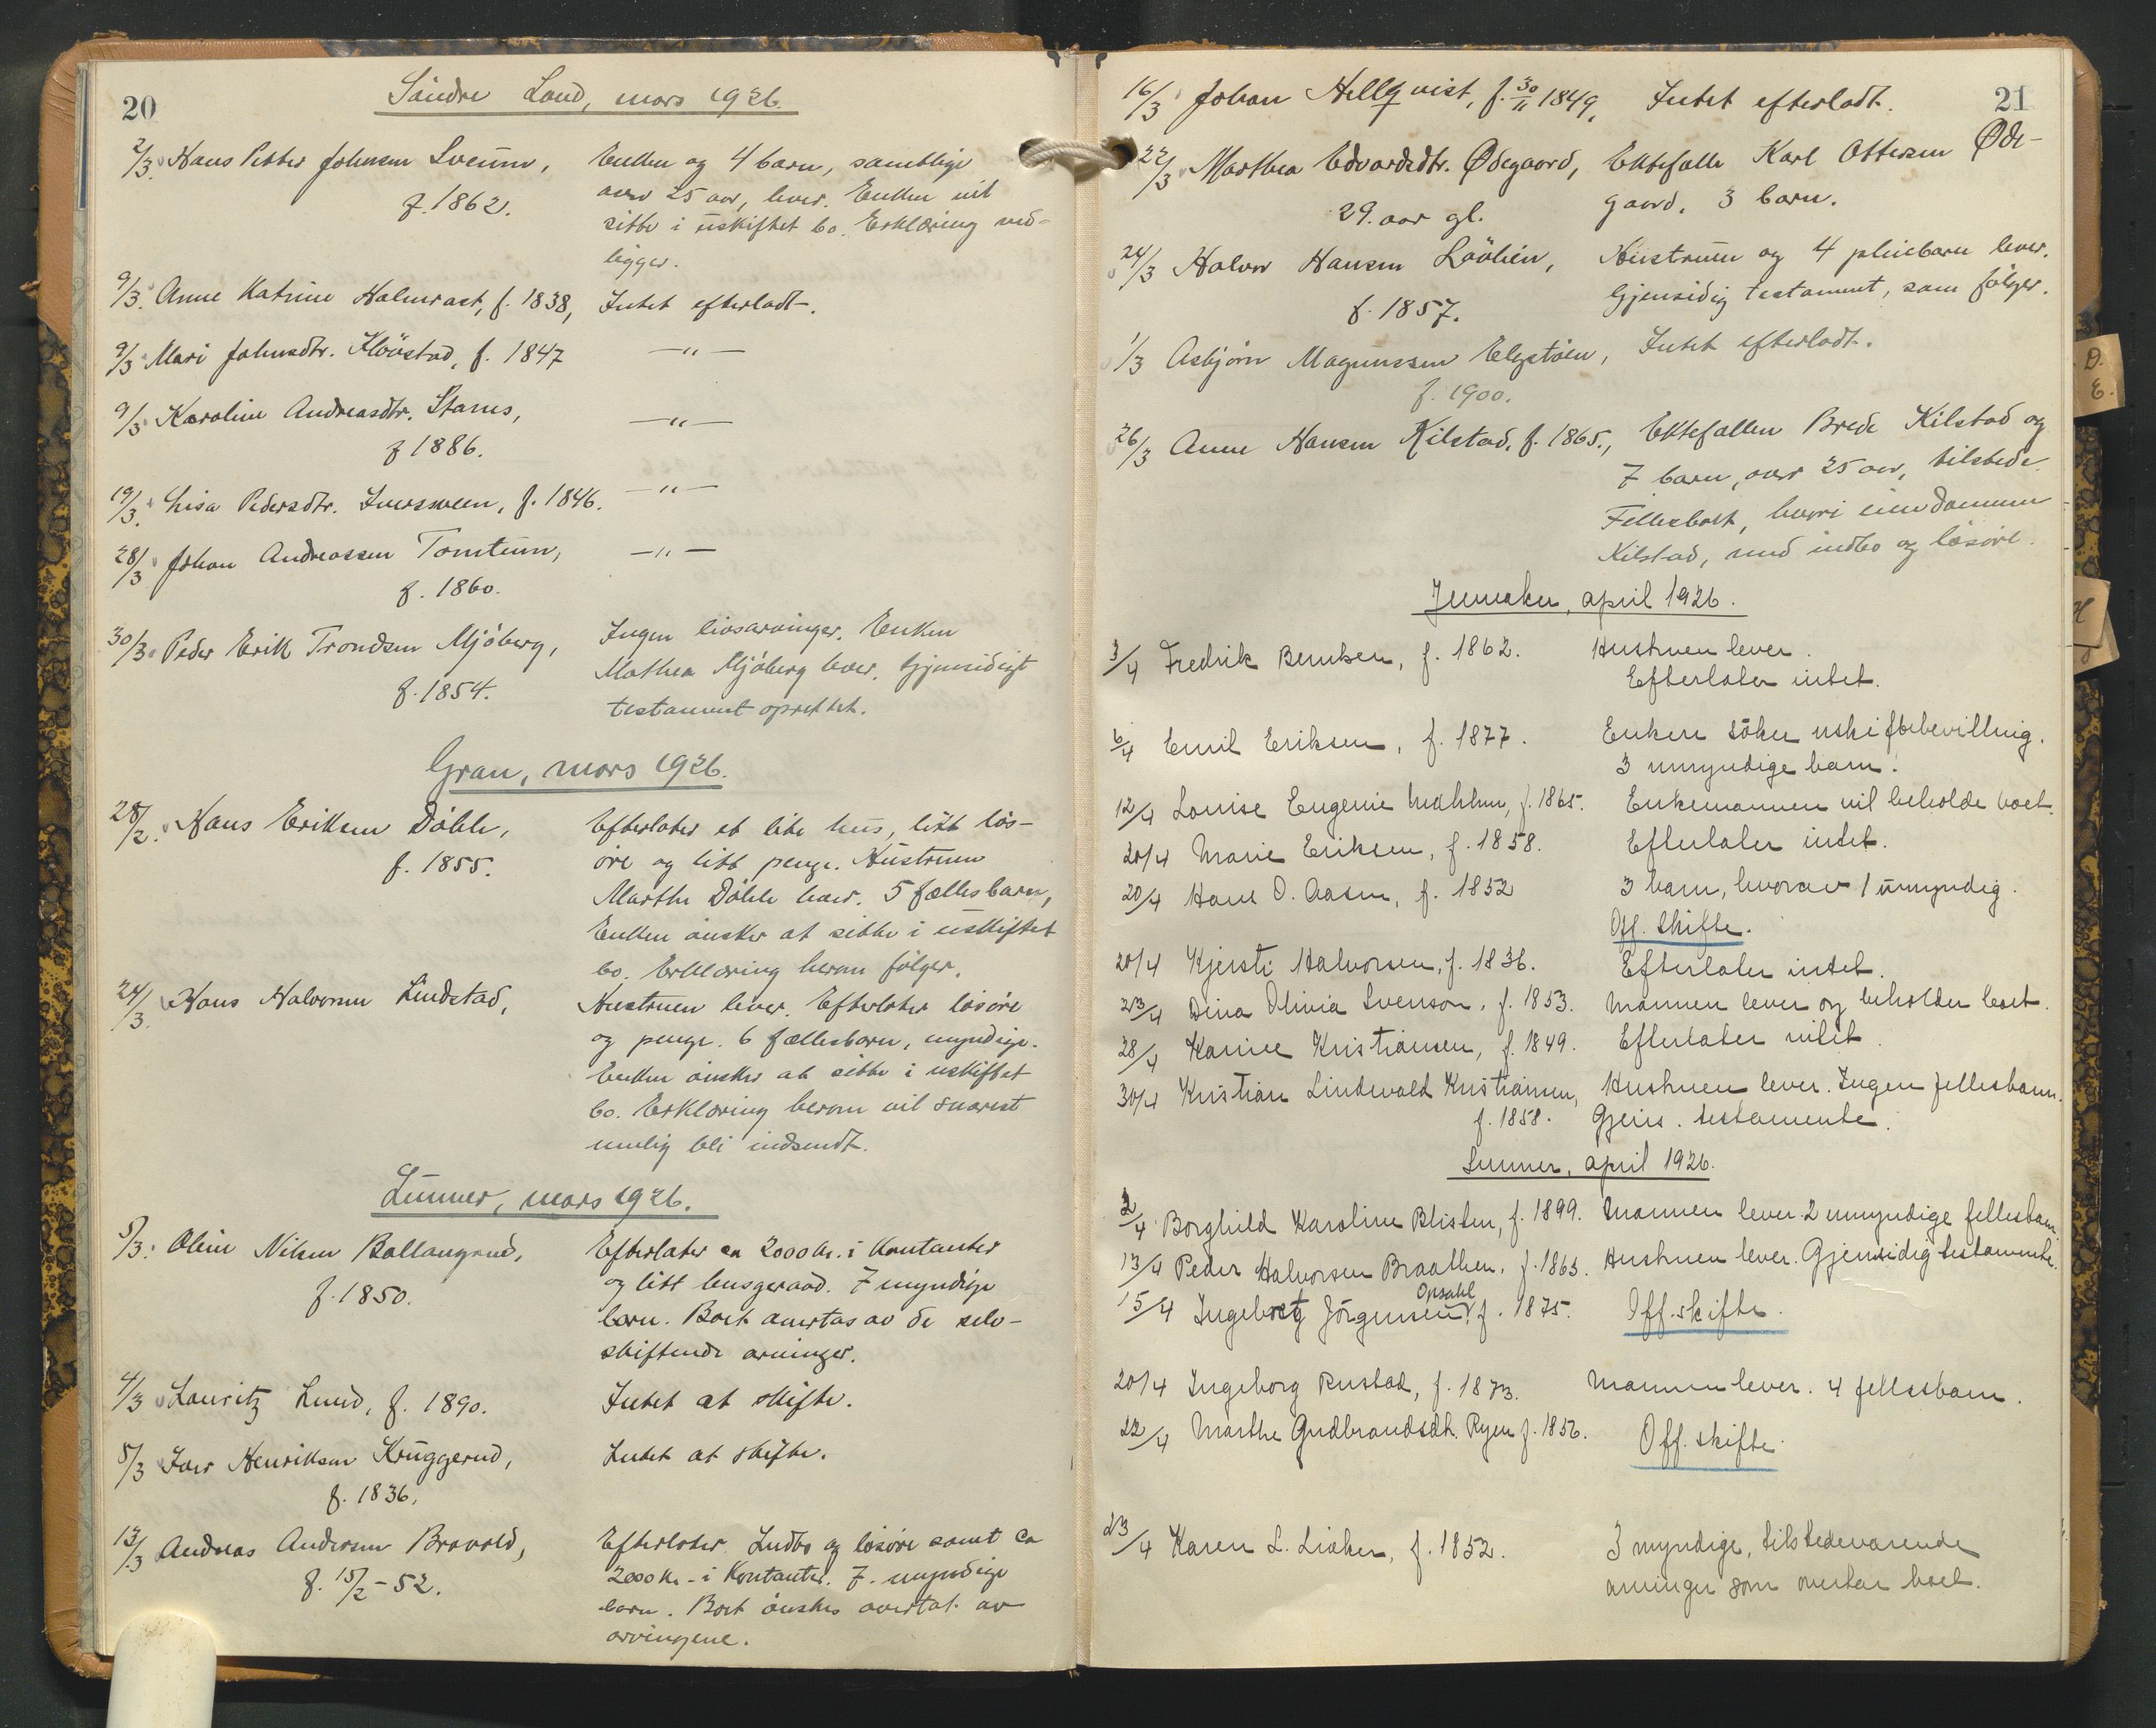 20
Söndre Land, mars 1926.
2/3. Hans Petter Johnsen Sveum, Enken og 4 barn, samtlige
f. 1862. over 25 aar, lever. Enken vil
sitte i uskiftet bo. Erklæring ved-
ligger.
9/3. Anne Katrine Halmrast, f. 1838, Intet efterladt.
9/3 Mari Johnsdtr. Kløvstad, f. 1847 —"—
9/3. Karoline Andreasdtr. Stams, —"—
f 1886.
19/3. Lisa Pedersdtr. Iversveen, f. 1846. —"—
28/3 Johan Andreassen Tomtum, —"—
f. 1860.
30/3 Peder Erik Trondsen Mjöberg, Ingen livsarvinger. Enken
f. 1854. Mathea Mjöberg lever. Gjensidigt
testament oprettet.
Gran, mars 1926.
28/2. Hans Eriksen Döhle, Efterlater et lite hus, litt lös-
f. 1855. öre og litt penge. Hustruen
Marthe Döhle lever. 5 fællesbarn,
Enken önsker at sitte i uskiftet
bo. Erklæring herom fölger.
24/3. Hans Halvorsen Lindstad, Hustruen lever. Efterlater lösöre
og penge. 6 fællesbarn, myndige.
Enken önsker at sitte i uskiftet
bo. Erklæring herom vil snarest
mulig bli indsendt.
Lunner, mars 1926.
5/3. Oline Nilsen Ballangrud, Efterlater ca 2000 kr. i kontanter
f. 1850. og litt husgeraad. 7 myndige
barn. Boet overtas av de selv-
skiftende arvinger.
4/3 Lauritz Lund, f. 1890. Intet at skifte.
5/3 Iver Henriksen Kruggerud, Intet at skifte.
f. 1836.
13/3 Andreas Andersen Bravold, Efterlater Indbo og lösöre samt ca
f. 15/2 - 52. 2000 kr - i kontanter. 7. myndige
barn. Boet önskes overtat av
arvingene.
21
16/3 Johan Hellqvist, f. 30/11 1849, Intet efterladt.
22/3 Marthea Edvardsdtr. Ødegaard, Ektefælle Karl Ottersen Øde-
29. aar gl. gaard. 3 barn.
24/3 Halvor Hansen Löölien, Hustruen og 4 pleiebarn lever.
f. 1857. Gjensidig testament, som fölger.
1/3 Asbjörn Magnussen Elgstöen, Intet efterladt.
f. 1900.
26/3 Anne Hansen Kilstad, f. 1865., Ektefællen Brede Kilstad og
7 barn, over 25 aar, tilstede.
Fellesboet, hvori eiendommen
Kilstad, med indbo og lösöre.
Jevnaker, april 1926.
3/4 Fredrik Berntsen, f. 1862. Hustruen lever.
Efterlater intet.
6/4 Emil Eriksen, f. 1877. Enken söker uskiftebevilling.
3 umyndige barn.
12/4 Louise Eugenie Mahlum, f. 1865. Enkemannen vil beholde boet.
20/4 Marie Eriksen, f. 1858. Efterlater intet.
20/4 Hans O. Aasen, f. 1852 3 barn, hvorav 1 umyndig.
Off. skifte.
20/4 Kjersti Halvorsen, f. 1836. Efterlater intet.
23/4 Dina Olivia Svenson, f. 1853. Mannen lever og beholder boet.
28/4 Karine Kristiansen, f. 1849. Efterlater intet.
30/4 Kristian Lindevald Kristiansen, Hustruen lever. Ingen fellesbarn.
f. 1858. Gjens. testamente.
Lunner, april 1926.
2/4 Borghild Karoline Blisten, f. 1899. Mannen lever. 2 umyndige fellesbarn.
13/4 Peder Halvorsen Braathen, f. 1863. Hustruen lever. Gjensidig testamente.
Opsahl
15/4 Ingeborg Jörgensen f. 1875. Off. skifte.
20/4 Ingeborg Rustad, f. 1873. Mannen lever. 4 fellesbarn.
22/4 Marthe Gudbrandsdt. Ryen f. 1856. Off. skifte.
23/4 Karen L. Liaker, f. 1852. 3 myndige, tilstedeværende
arvinger som overtar boet.
D.
E.
H